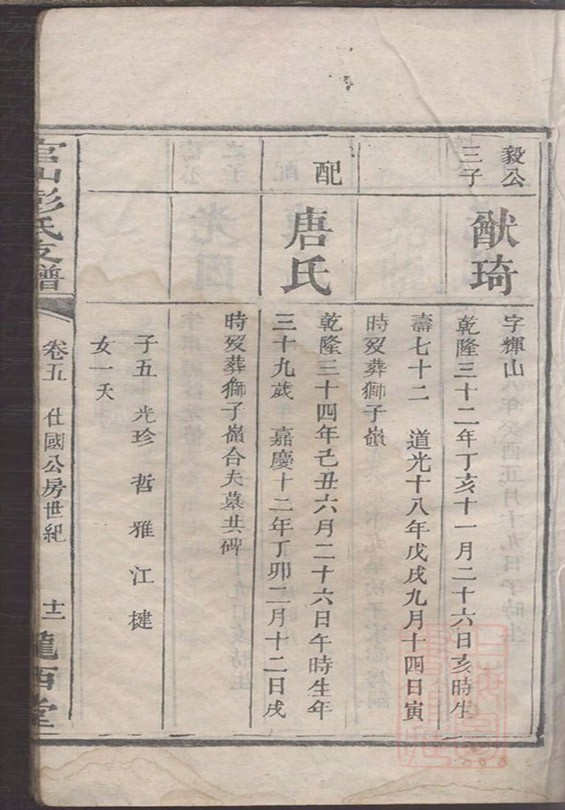 毅公三子
猷琦
字輝山
乾隆三十二年丁亥十一月二十六日亥時生
壽七十二 道光十八年戊戌九月十四日寅
時歿葬獅子嶺
配
唐氏
乾隆三十四年己丑六月二十六日午時生年
三十九歲 嘉慶十二年丁卯二月十二日戌
時歿葬獅子嶺合夫墓共碑
子五 光珍 哲 雅 江 揵
女一夭
官山彭氏支譜
卷五 仕國公房世紀
十二
隴西堂